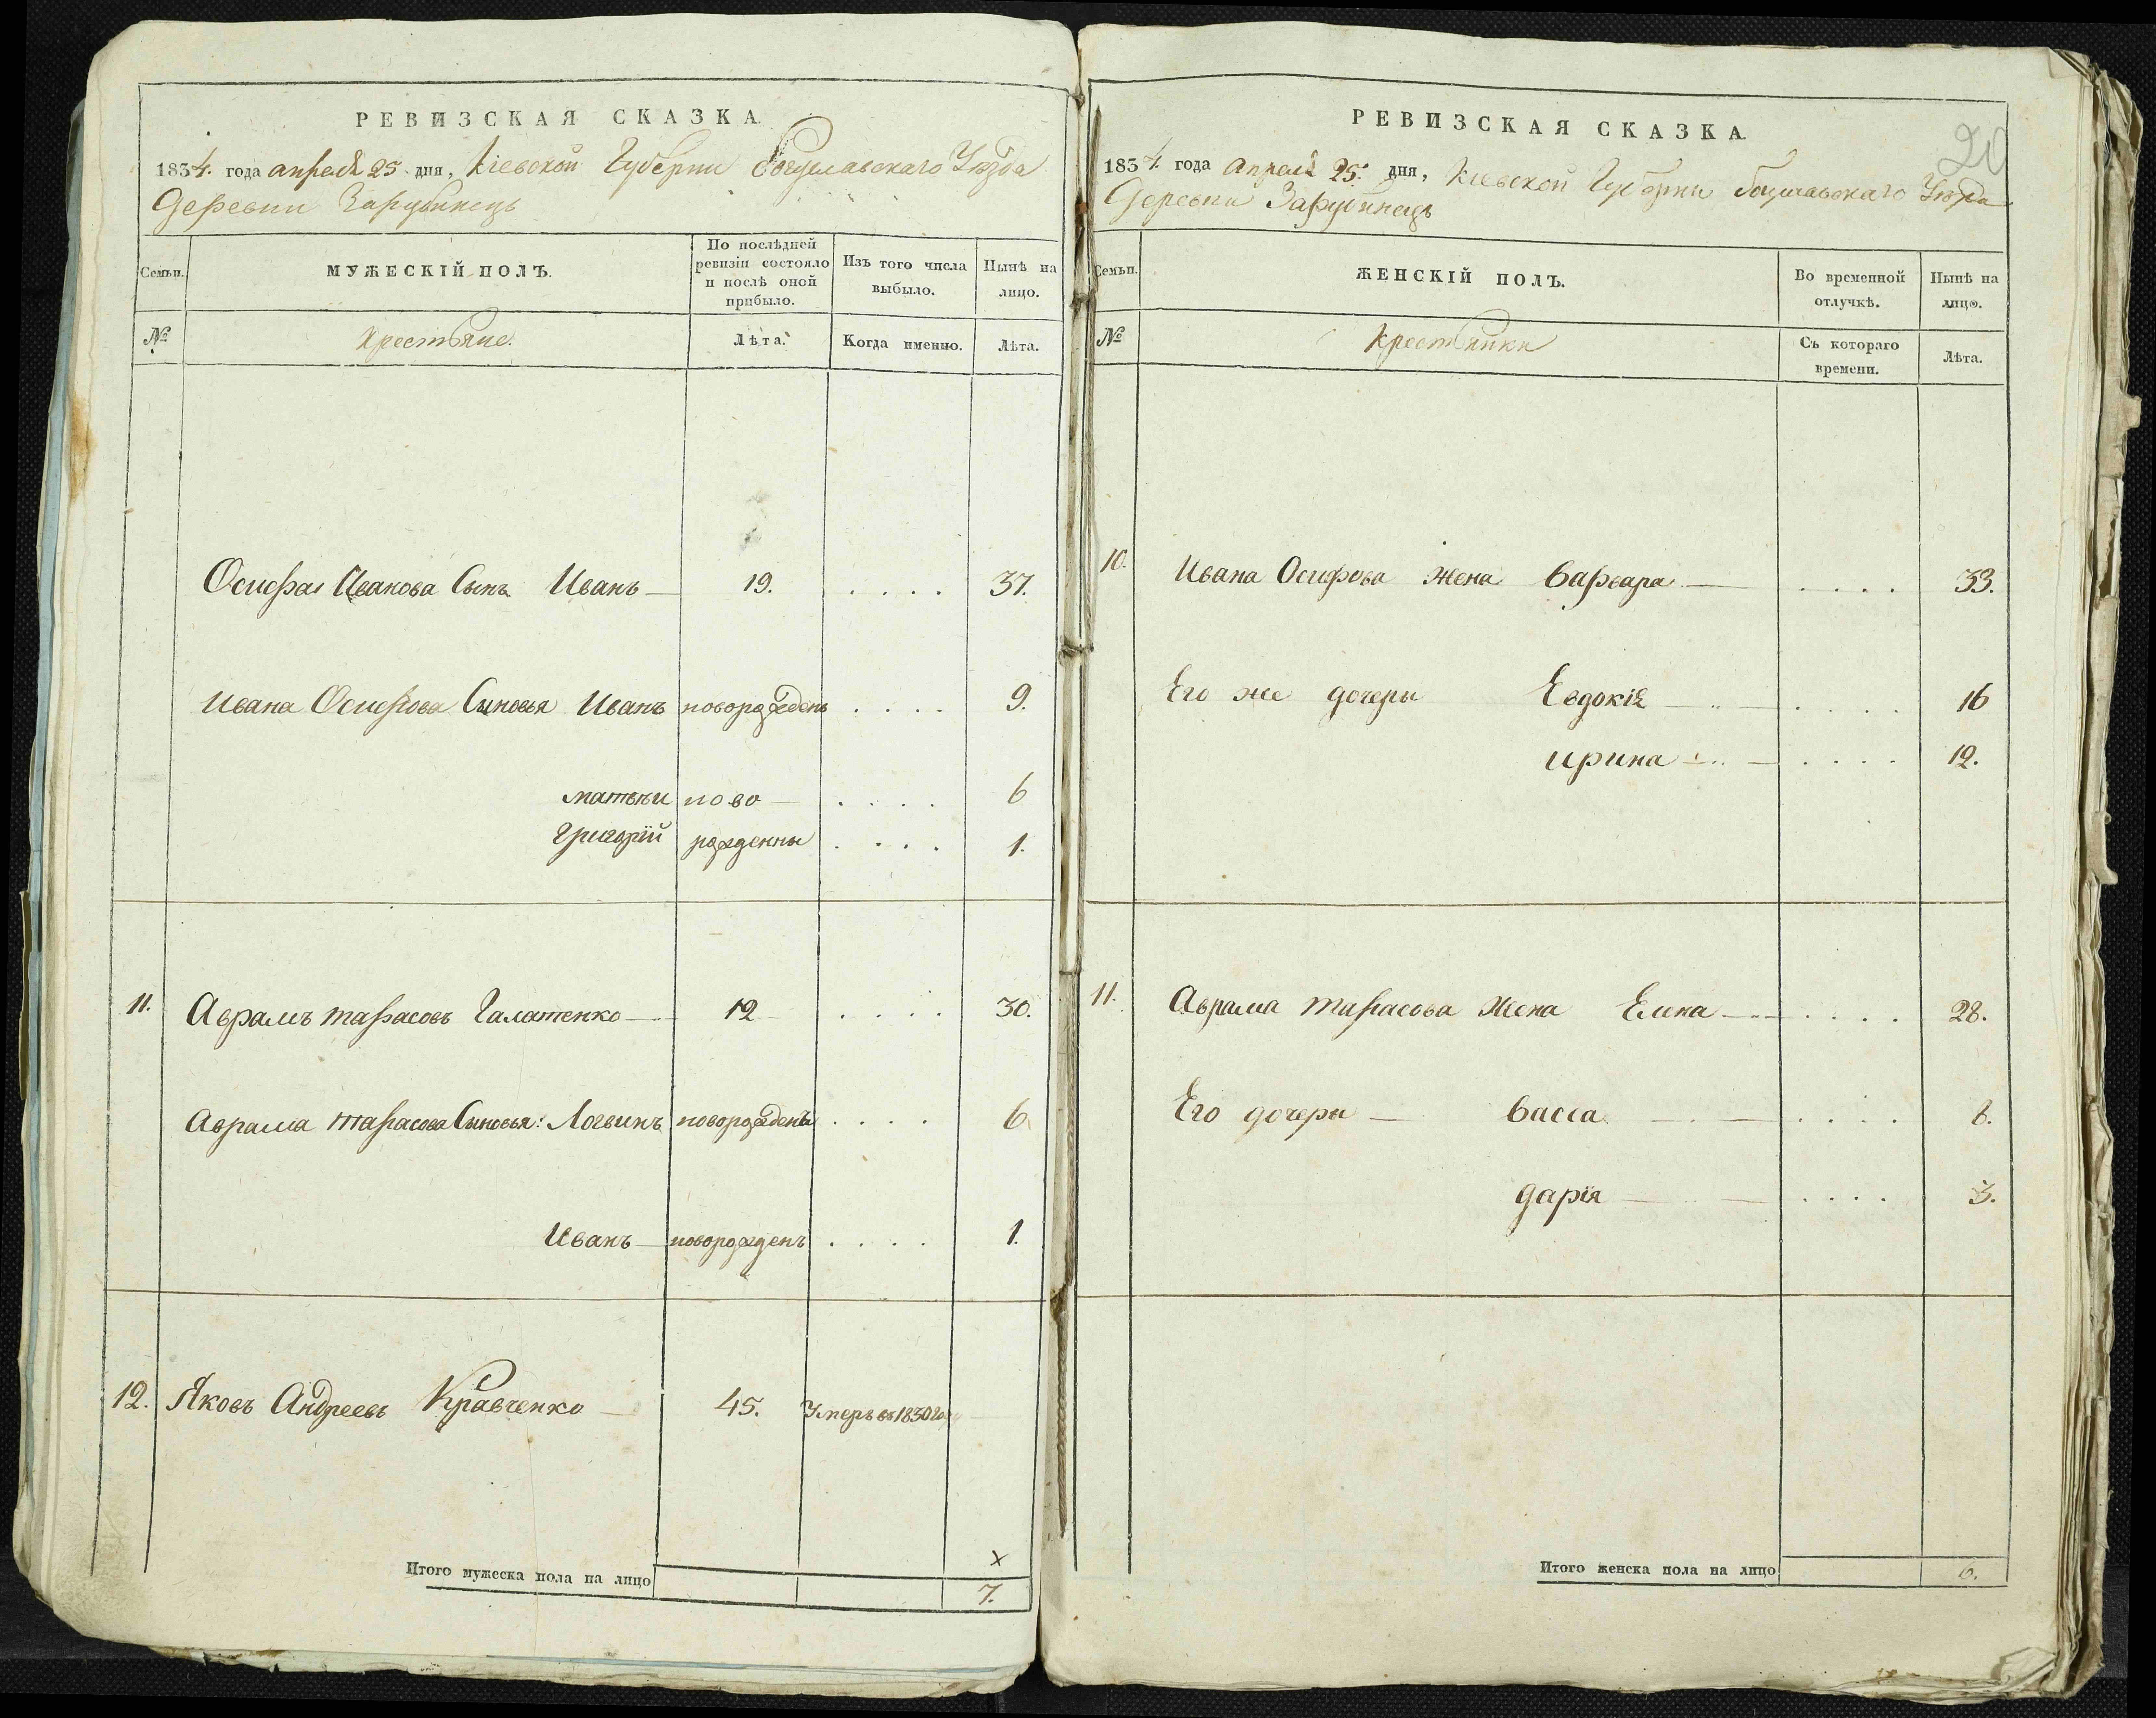 РЕВИЗСКАЯ СКАЗКА.
1834. года апреля 25. дня, Кіевской Губерніи Богуславскаго Уѣзда
Деревни Зарубинецъ
Семьи.
МУЖЕСКІЙ ПОЛЪ.
По послѣдней ревизіи состояло и послѣ оной прибыло.
Изъ того числа выбыло.
Нынѣ на лицо.
№
Крестьяне.
Лѣта.
Когда именно.
Лѣта.
Осифа Иванова Сынъ Иванъ — 19. . . . . 37.
Ивана Осифова Сыновья Иванъ новорожденъ . . . . 9.
матвѣи ново — . . . . 6
Григорій рожденны . . . . 1.
11. Аврамъ тарасовъ Галатенко — 12 — . . . . 30.
Аврама тарасова Сыновья: Логвинъ новорожденъ . . . . 6.
Иванъ — новорожденъ . . . . 1.
12. Яковъ Андреевъ Кравченко — 45. Умеръ въ 1830 году
х
Итого мужеска пола на лицо 7.
20
РЕВИЗСКАЯ СКАЗКА.
1834. года Апреля 25. дня, Кіевской Губерніи Богуславскаго Уѣзда
Деревни Зарубинецъ
Семьи.
ЖЕНСКІЙ ПОЛЪ.
Во временной отлучкѣ.
Нынѣ на лицо.
№
Крестьянки
Съ котораго времени.
Лѣта.
10. Ивана Осифова жена Варвара — . . . . 33.
Его же дочери Евдокія — . . . . 16
Ирина — . . . . 12.
11. Аврама тарасова жена Елена — . . . . 28.
Его дочери — Васса — . . . . 8.
Дарія — . . . . 3.
Итого женска пола на лицо 6.